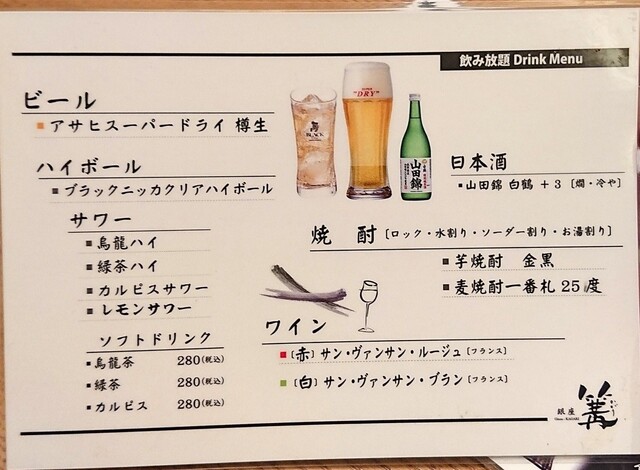 飲み放題 Drink Menu
ビール
■アサヒスーパードライ 樽生
ハイボール
■ブラックニッカクリアハイボール
サワー
■烏龍ハイ
■緑茶ハイ
■カルピスサワー
■レモンサワー
ソフトドリンク
■烏龍茶 280(税込)
■緑茶 280(税込)
■カルピス 280(税込)
BLACK
SUPER
"DRY"
山田錦
日本酒
■山田錦 白鶴 +3 [燗・冷や]
焼 酎 [ロック・水割り・ソーダー割り・お湯割り]
■芋焼酎 金黒
■麦焼酎一番札 25度
ワイン
■[赤] サン・ヴァンサン・ルージュ [フランス]
■[白] サン・ヴァンサン・ブラン [フランス]
銀座
篝